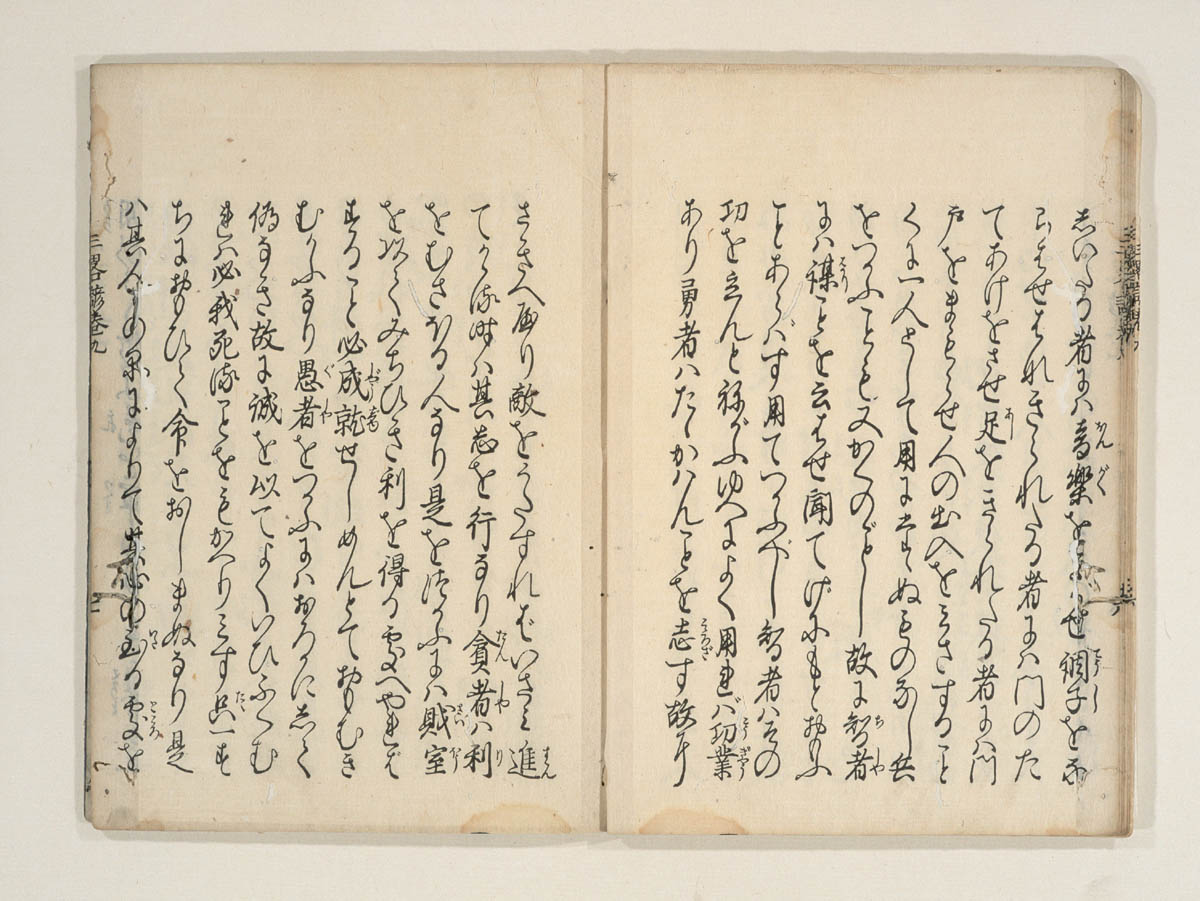 しいたる者には音樂をきかせ調子をな
らはせはれきられたる者には門のた
てあけをさせ足をきられたる者には門
戸をまもらせ人の出入をみさすること
くに一人として用にたゝぬものなし兵
をつかふことも又かくのごとし故に智者
には謀ことを云はせ聞てげにもとおもふ
ことあらバす用てつかふべし智者ハその
功を立んと祢がふゆへによく用れバ功業
あり勇者ハたゝかハんことを志す故に
さきへ廻り敵をうたすれバいさみ進
てゆく時ハ其志を行なり貪者ハ利
をむさぼる人なり是をつかふにハ賊室
を以てみちひき利を得る処へやれバ
することと必成就せしめんとておもむき
むかふなり愚者をつかふにハおろかにしく
偽なき故に誠を以てよくいひふくむ
れハ必我死ることをもかへりミす只一す
ちにおもひて命をおしまぬなり是
ハ其人々の気によりて其心の至る処を
三畧諺巻九